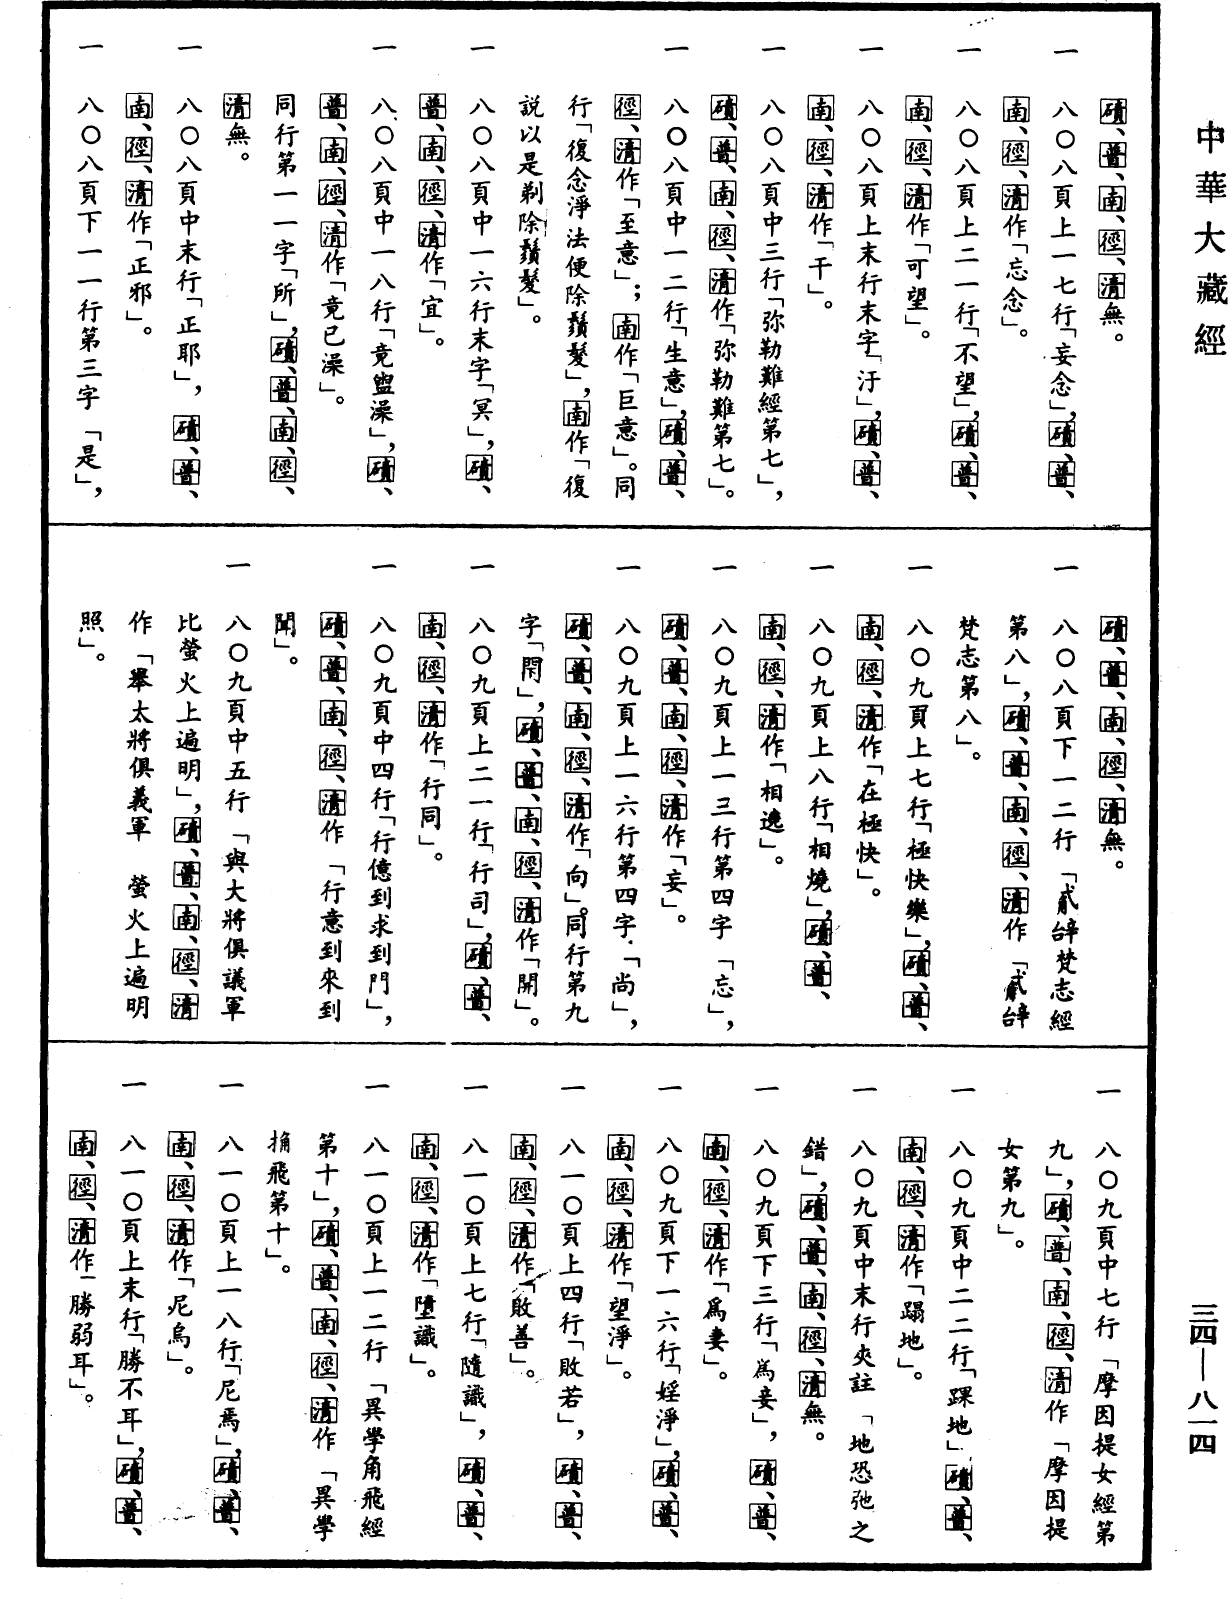 中華大藏經
磧、普、南、徑、清無。
一　八〇八頁上一七行「妄念」，磧、普、
南、徑、清作「忘念」。
一　八〇八頁上二一行「不望」，磧、普、
南、徑、清作「可望」。
一　八〇八頁上末行末字「汙」，磧、普、
南、徑、清作「干」。
一　八〇八頁中三行「弥勒難經第七」，
磧、普、南、徑、清作「弥勒難第七」。
一　八〇八頁中一二行「生意」，磧、普、
徑、清作「至意」；南作「巨意」。同
行「復念淨法便除鬚髮」，南作「復
説以是剃除鬚髮」。
一　八〇八頁中一六行末字「冥」，磧、
普、南、徑、清作「宜」。
一　八〇八頁中一八行「竟盥澡」，磧、
普、南、徑、清作「竟已澡」。
同行第一一字「所」，磧、普、南、徑、
清無。
一　八〇八頁中末行「正耶」，磧、普、
南、徑、清作「正邪」。
一　八〇八頁下一一行第三字「是」，
磧、普、南、徑、清無。
一　八〇八頁下一二行「貳辝梵志經
第八」，磧、普、南、徑、清作「貳辝
梵志第八」。
一　八〇九頁上七行「極快樂」，磧、普、
南、徑、清作「在極快」。
一　八〇九頁上八行「相燒」，磧、普、
南、徑、清作「相遶」。
一　八〇九頁上一三行第四字「忘」，
磧、普、南、徑、清作「妄」。
一　八〇九頁上一六行第四字「尚」，
磧、普、南、徑、清作「向」。同行第九
字「閇」，磧、普、南、徑、清作「開」。
一　八〇九頁上二一行「行司」，磧、普、
南、徑、清作「行同」。
一　八〇九頁中四行「行億到求到門」，
磧、普、南、徑、清作「行意到來到
聞」。
一　八〇九頁中五行「與大將俱議軍
比螢火上遍明」，磧、普、南、徑、清
作「舉太將俱義軍　螢火上遍明
照」。
一　八〇九頁中七行「摩因提女經第
九」，磧、普、南、徑、清作「摩因提
女第九」。
一　八〇九頁中二二行「踝地」，磧、普、
南、徑、清作「蹋地」。
一　八〇九頁中末行夾註「地恐弛之
錯」，磧、普、南、徑、清無。
一　八〇九頁下三行「為妾」，磧、普、
南、徑、清作「爲妻」。
一　八〇九頁下一六行「婬淨」，磧、普、
南、徑、清作「望淨」。
一　八一〇頁上四行「敗若」，磧、普、
南、徑、清作「敗善」。
一　八一〇頁上七行「隨識」，磧、普、
南、徑、清作「墮識」。
一　八一〇頁上一二行「異學角飛經
第十」，磧、普、南、徑、清作「異學
捔飛第十」。
一　八一〇頁上一八行「尼焉」，磧、普、
南、徑、清作「尼烏」。
一　八一〇頁上末行「勝不耳」，磧、普、
南、徑、清作「勝弱耳」。
三四—八一四